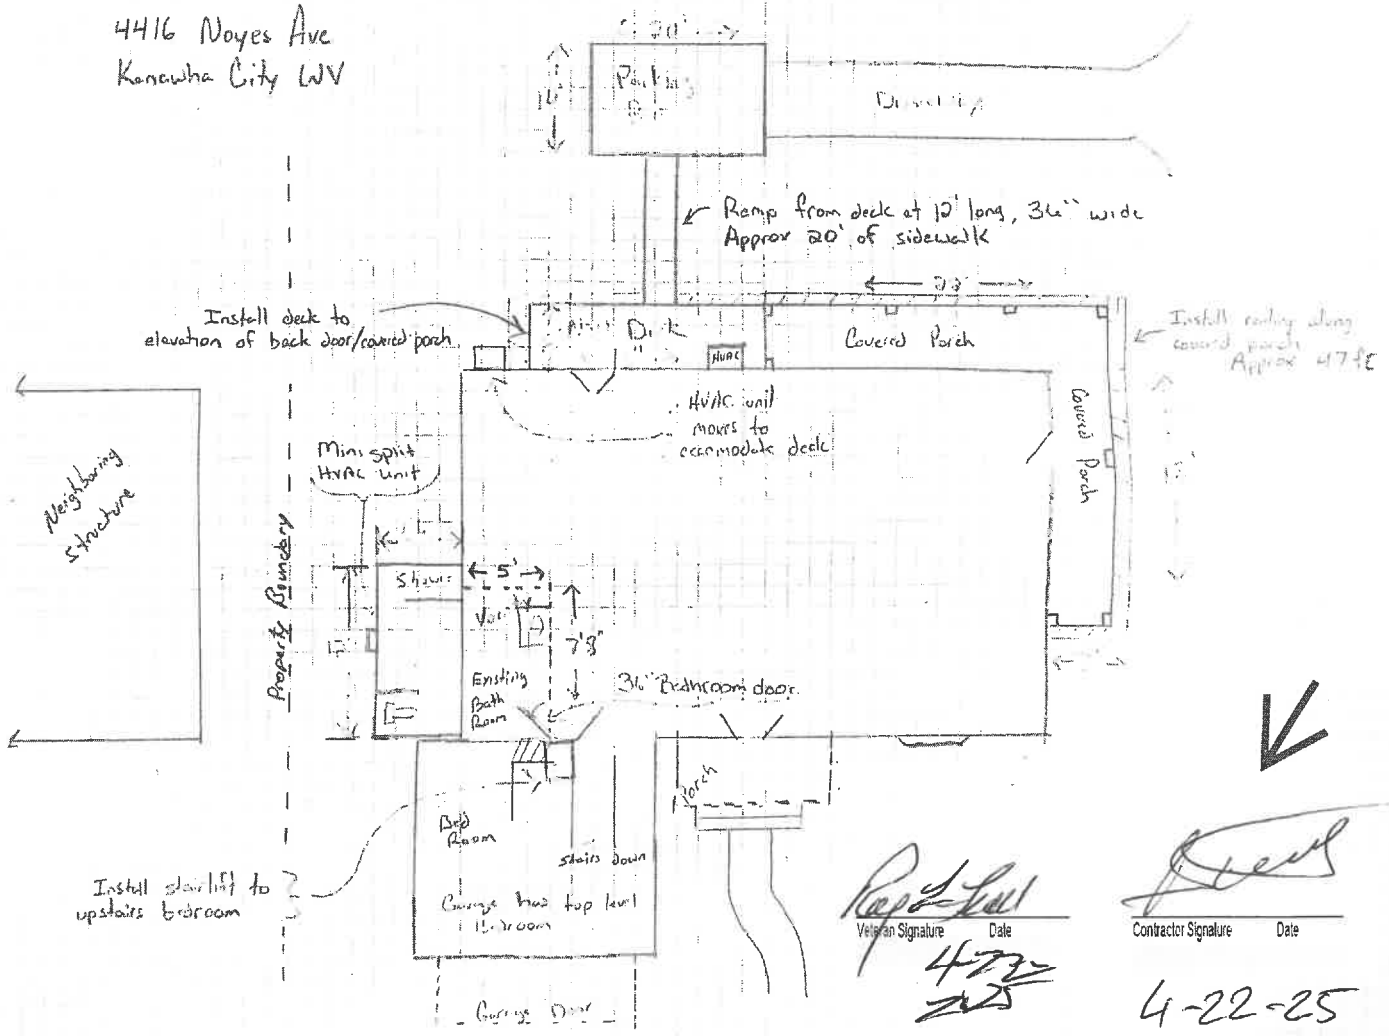 4416 Noyes Ave
Kanawha City WV
20'
Parking
Driveway
Ramp from deck at 12' long, 36" wide
Approx 20' of sidewalk
Install deck to
elevation of back door/covered porch
Deck
HVAC
Covered Porch
Install railing along
covered porch
Approx 47 ft
HVAC unit
moves to
accomodate deck
Covered Porch
Mini split
HVAC unit
Neighboring
Structure
Property Boundary
Shower
5'
7'8"
Existing
Bath
Room
36" Bathroom door
Porch
Bed
Room
Stairs down
Install stairlift to
upstairs bedroom
Garage has top level
Bedroom
Garage Door
Veteran Signature Date
Contractor Signature Date
4-22-
2025
4-22-25